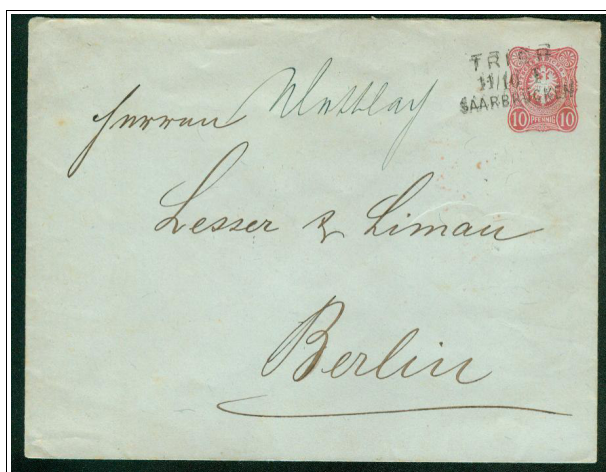 TRIER
11/10
SAARBRÜCKEN
10 PFENNIG 10
Herren
Lesser & Liman
Berlin